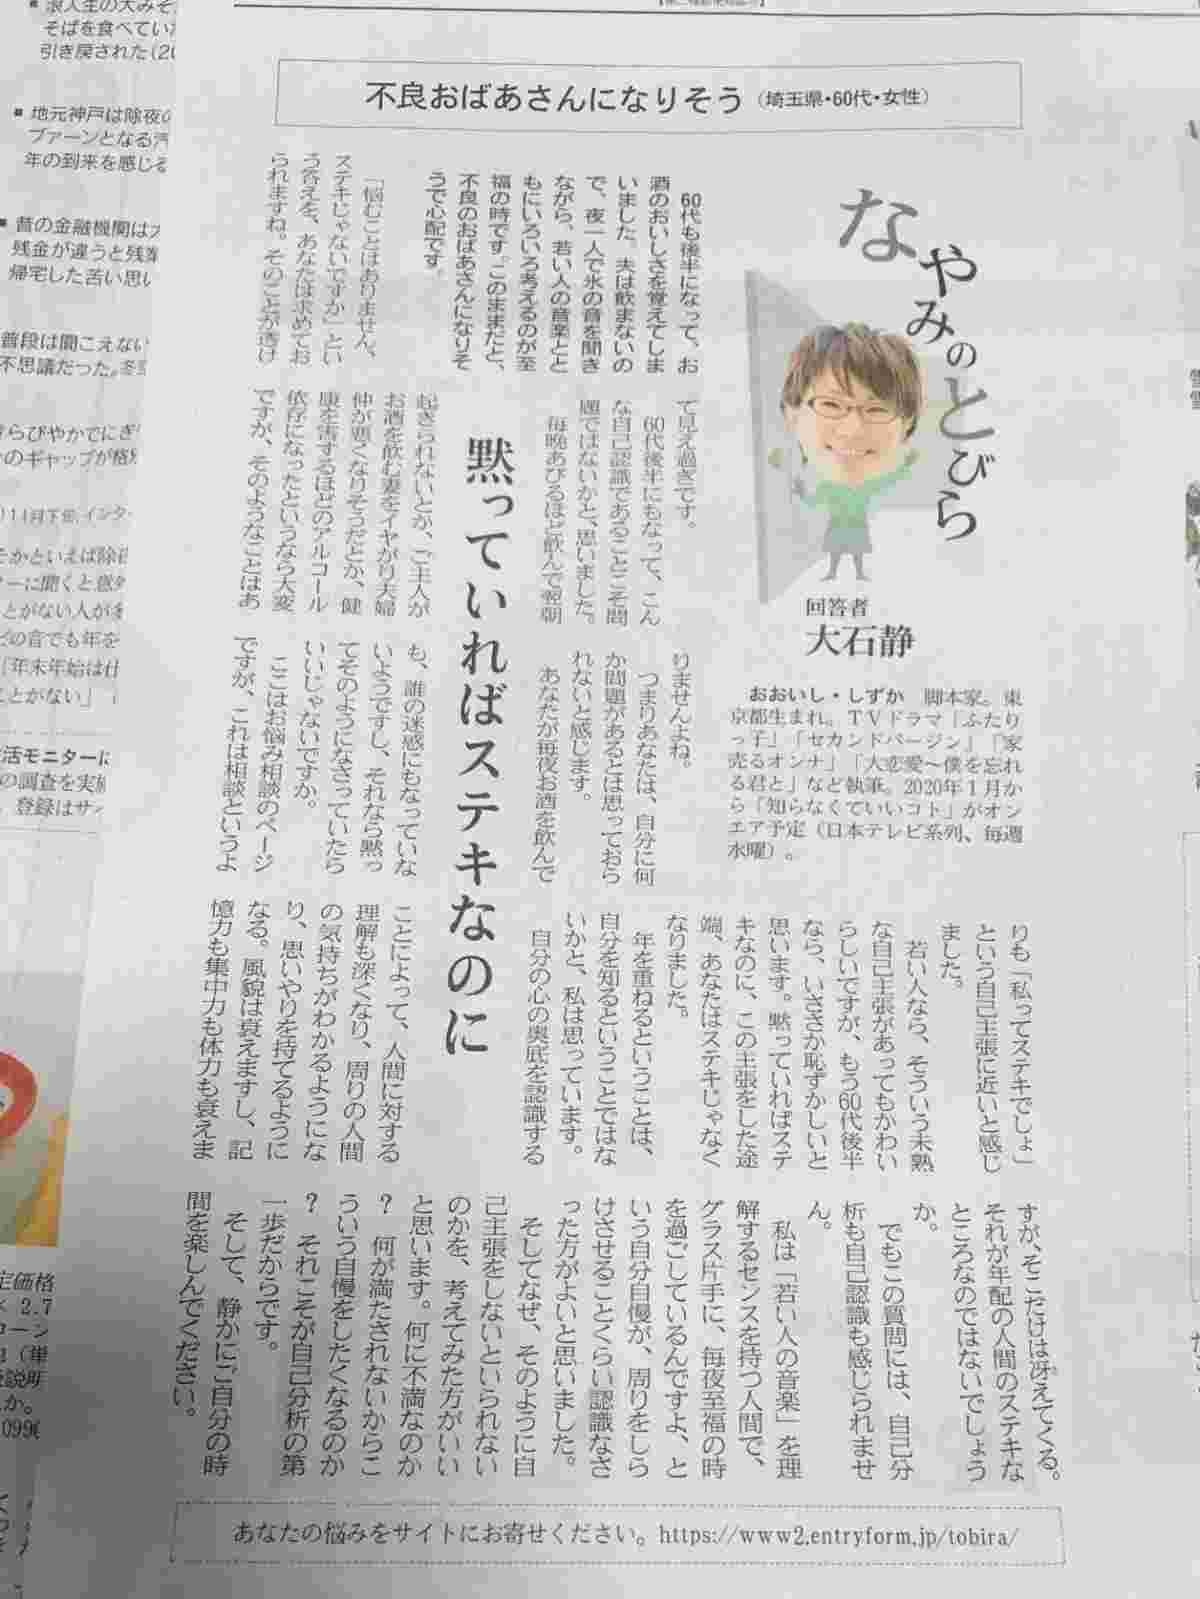 不良おばあさんになりそう（埼玉県・60代・女性）
なやみのとびら
回答者
大石静
おおいし・しずか　脚本家。東
京都生まれ。ＴＶドラマ「ふたり
っ子」「セカンドバージン」「家
売るオンナ」「大恋愛〜僕を忘れ
る君と」など執筆。2020年１月か
ら「知らなくていいコト」がオン
エア予定（日本テレビ系列、毎週
水曜）。
60代も後半になって、お
酒のおいしさを覚えてしま
いました。夫は飲まないの
で、夜一人で氷の音を聞き
ながら、若い人の音楽とと
もにいろいろ考えるのが至
福の時です。このままだと、
不良のおばあさんになりそ
うで心配です。
「悩むことはありません、
ステキじゃないですか」とい
う答えを、あなたは求めてお
られますね。そのことが透け
て見え過ぎです。
60代後半にもなって、こん
な自己認識であることこそ問
題ではないかと、思いました。
毎晩あびるほど飲んで翌朝
黙っていればステキなのに
起きられないとか、ご主人が
お酒を飲む妻をイヤがり夫婦
仲が悪くなりそうだとか、健
康を害するほどのアルコール
依存になったというなら大変
ですが、そのようなことはあ
りませんよね。
つまりあなたは、自分に何
か問題があるとは思っておら
れないと感じます。
あなたが毎夜お酒を飲んで
も、誰の迷惑にもなっていな
いようですし、それなら黙っ
てそのようになさっていたら
いいじゃないですか。
ここはお悩み相談のページ
ですが、これは相談というよ
りも「私ってステキでしょ」
という自己主張に近いと感じ
ました。
若い人なら、そういう未熟
な自己主張があってもかわい
らしいですが、もう60代後半
なら、いささか恥ずかしいと
思います。黙っていればステ
キなのに、この主張をした途
端、あなたはステキじゃなく
なりました。
年を重ねるということは、
自分を知るということではな
いかと、私は思っています。
自分の心の奥底を認識する
ことによって、人間に対する
理解も深くなり、周りの人間
の気持ちがわかるようにな
り、思いやりを持てるように
なる。風貌は衰えますし、記
憶力も集中力も体力も衰えま
すが、そこだけは冴えてくる。
それが年配の人間のステキな
ところなのではないでしょう
か。
でもこの質問には、自己分
析も自己認識も感じられませ
ん。
私は「若い人の音楽」を理
解するセンスを持つ人間で、
グラス片手に、毎夜至福の時
を過ごしているんですよ、と
いう自分自慢が、周りをしら
けさせることくらい認識なさ
った方がよいと思いました。
そしてなぜ、そのように自
己主張をしないといられない
のかを、考えてみた方がいい
と思います。何に不満なのか
？　何が満たされないからこ
ういう自慢をしたくなるのか
？　それこそが自己分析の第
一歩だからです。
そして、静かにご自分の時
間を楽しんでください。
あなたの悩みをサイトにお寄せください。https://www2.entryform.jp/tobira/
そばを食べてい
引き戻された(20
■ 地元神戸は除夜の
ファーンとなる汽
年の到来を感じる
■ 昔の金融機関は大
残金が違うと残業
帰宅した苦い思い
普段は聞こえない
不思議だった。
のギャップが格別
11月下旬、インター
そかといえば除夜
ターに聞くと意外
とがない人が多
どの音でも年を
「年末年始は仕
ことがない」
活モニターに
の調査を実施
登録はサイ
定価格
× 2.7
説明
か。